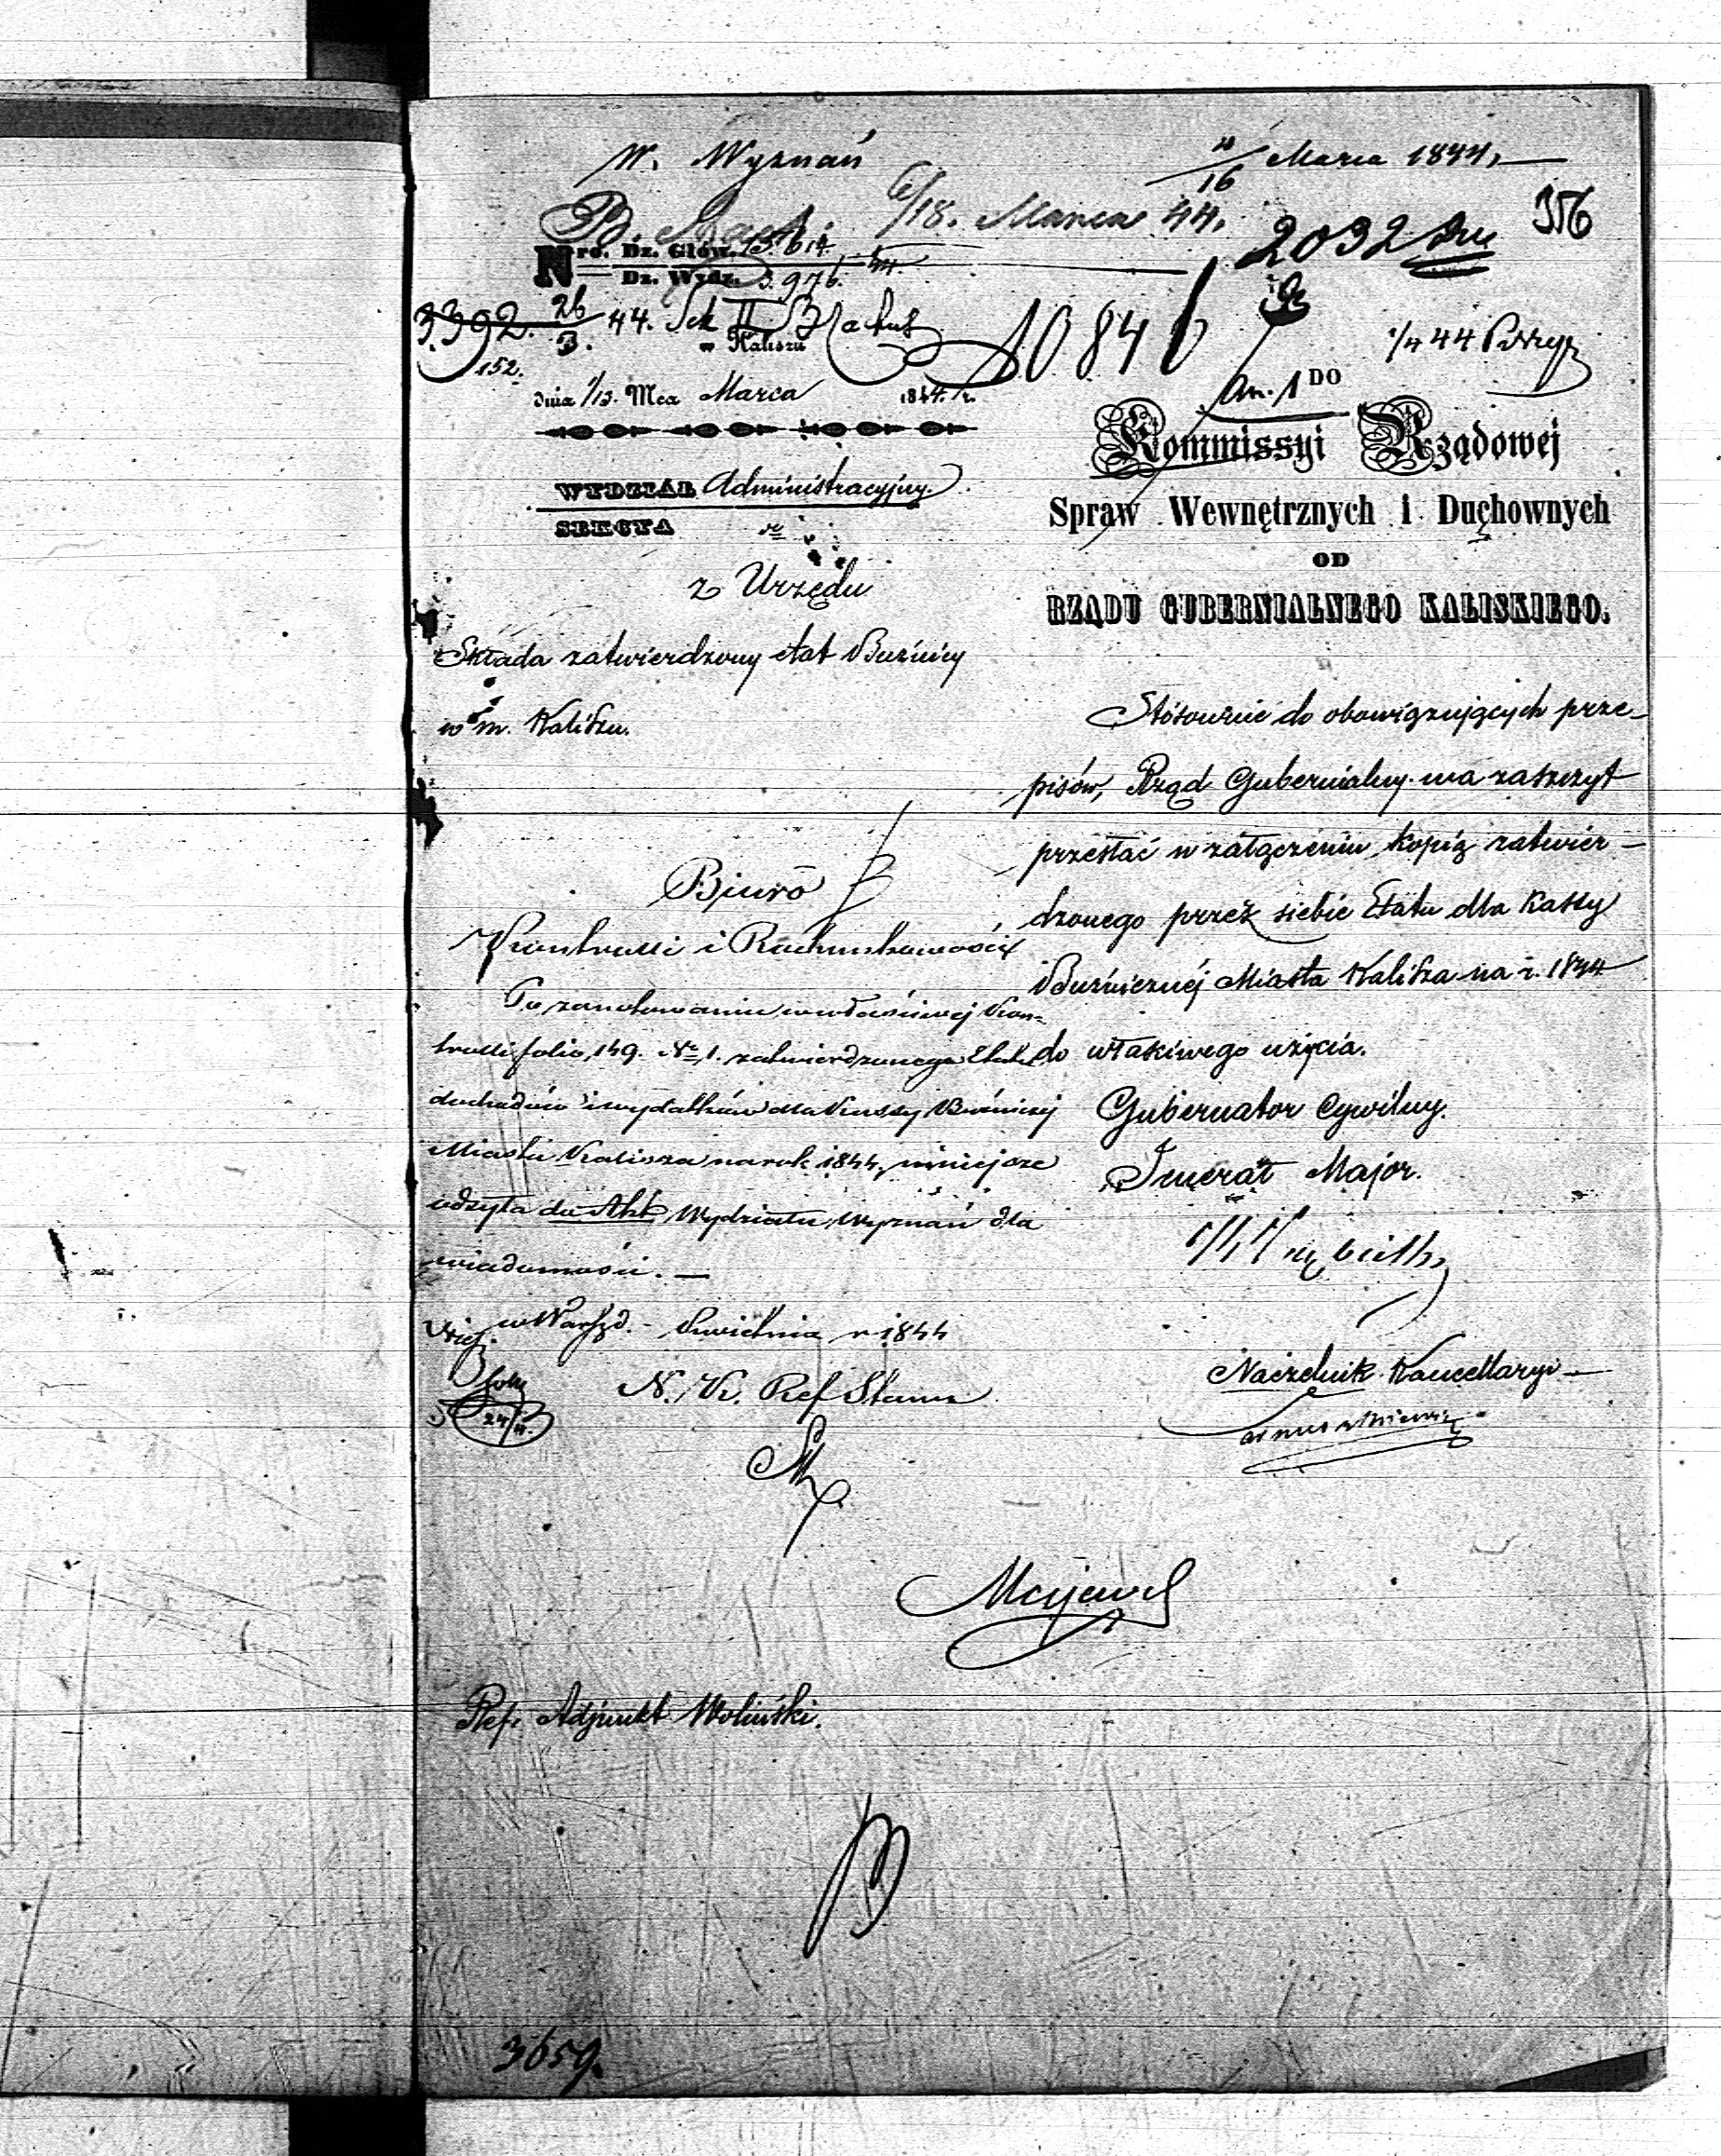 W. Wyznań
4/16 Marca 1844
6/18. Marca 44.
316
2032
Nro. Dz. Głów. 13614
Dz. Wydz. 3976.
3392. 26/3. 44. Sek II
152.
w Kaliszu
10846
1/4 44
dnia 1/13. Mca Marca 1844. r.
An. 1
DO
Kommissyi Rządowej
Spraw Wewnętrznych i Duchownych
OD
RZĄDU GUBERNIALNEGO KALISKIEGO.
WYDZIAŁ Administracyjny.
SEKCYA
z Urzędu
Składa zatwierdzony etat Bużnicy
w m. Kaliszu.
Stósownie do obowiązujących prze-
pisów, Rząd Gubernialny ma zaszczyt
przesłać w załączeniu kopią zatwier-
dzonego przez siebie Etatu dla Kassy
Bużnicznéj Miasta Kalisza na r. 1844
do właściwego użycia.
Gubernator Cywilny.
Jenerał Major.
Naczelnik Kancellaryi
Biuro
Kontrolli i Rachunkowości
Po zanotowaniu w właściwej Kon-
trolli folio, 149. Nr 1. zatwierdzonego Etatu
dochodów i wydatków dla Kassy Bożniczej
Miasta Kalisza na rok 1844, niniejsze
odsyła do Akt Wydziału Wyznań dla
wiadomości. —
w Warsz d. - Kwietnia r 1844
N. K. Ref Stanu
24/4.
Majewsk
Ref. Adjunkt Woliński.
3659.